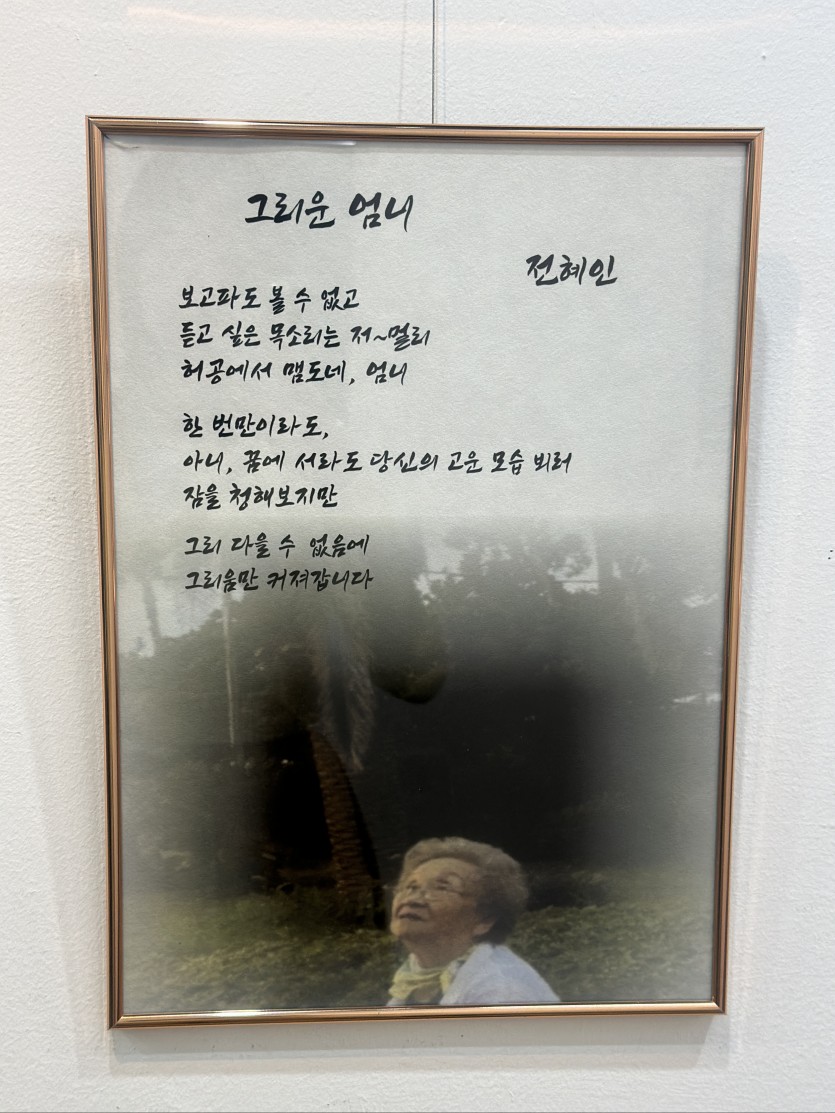 그리운 엄니
전혜인
보고파도 볼 수 없고
듣고 싶은 목소리는 저~멀리
허공에서 맴도네, 엄니
한 번만이라도,
아니, 꿈에 서라도 당신의 고운 모습 뵈러
잠을 청해보지만
그리 다을 수 없음에
그리움만 커져갑니다